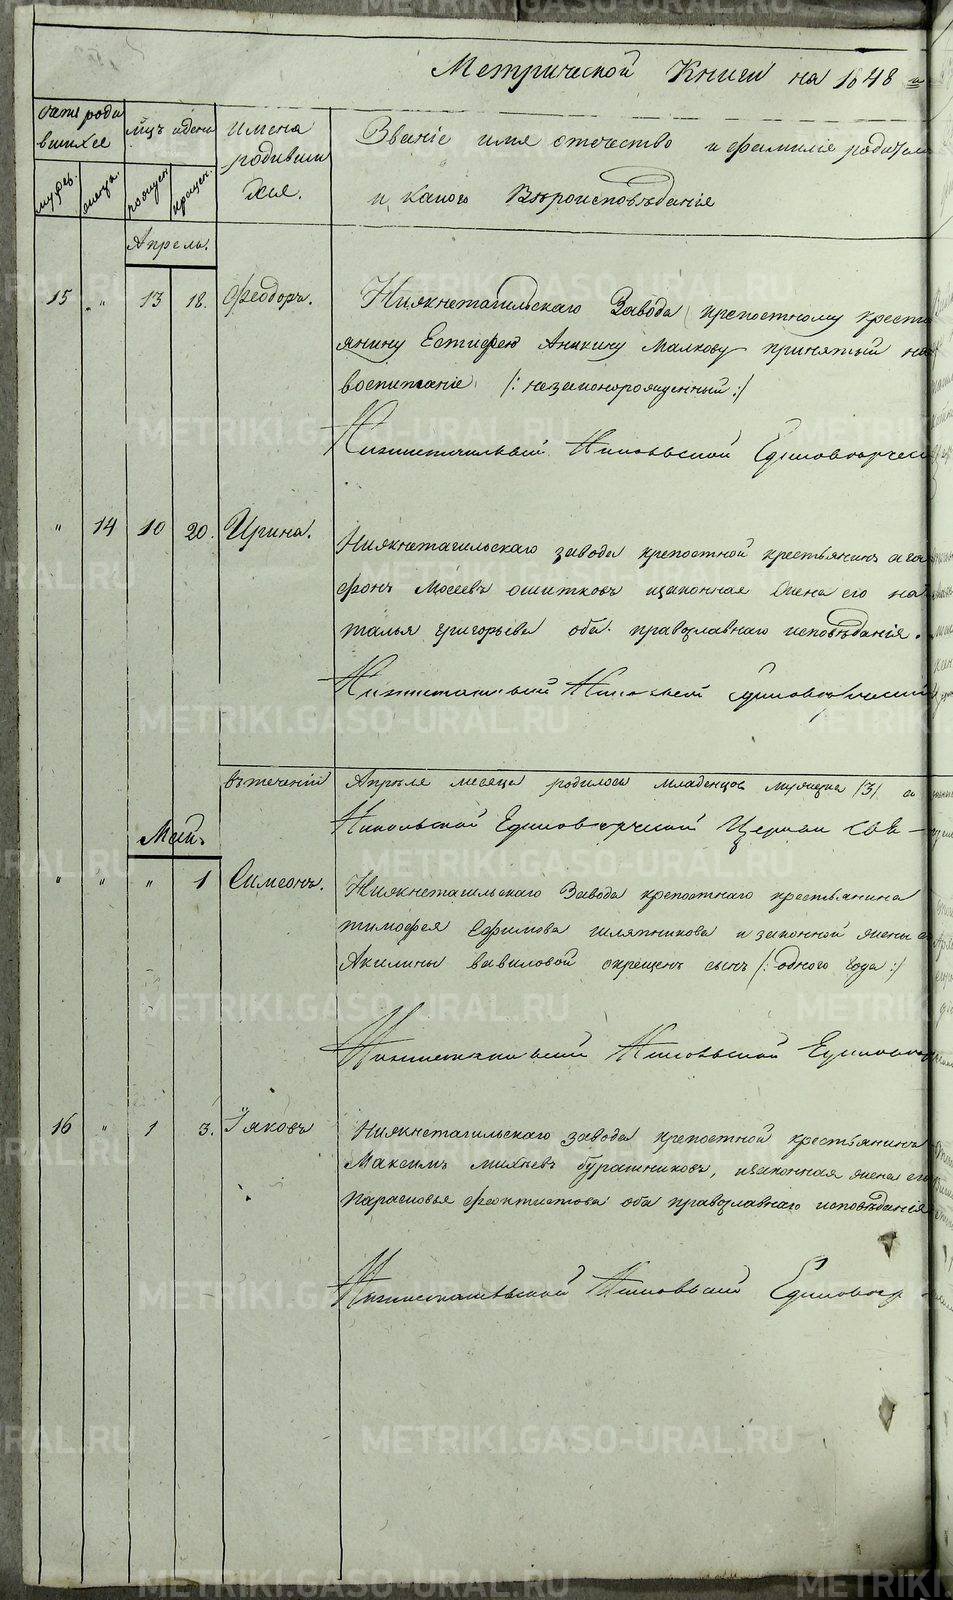 Метрической Книги на 1848
Счетъ роди
вшихся
мужес.
женска.
мѣцъ и день
рожден.
крещен.
имена
родивши
хся.
Званіе имя отчество и фамиліе родител
и какого Вѣроисповѣданія
Апрель.
15 " 13 18. Феодоръ.
Нижнетагильскаго Завода крепостному крестъ
янину Естифею Аникину Малкову принятый на
воспитаніе /: незаконорожденный :/
Нижнетагильской Никольской Единоверчес
" 14 10 20. Ирина.
Нижнетагильскаго завода крепостной крестьянинъ ага
фонъ Мосеевъ ошитковъ изаконная жена его на
талья григорьева оба православнаго исповѣданія.
Нижнетагильский Никольской Единоверческий
въ течении Апреле месяце родилось младенцовъ мужеска /3/ а
Никольской Единоверческой Церкви
Май.
" " " 1 Симеонъ.
Нижнетагильскаго Завода крепостнаго крестьянина
тимофея Ефимова шляпникова и законной жены е
Акилины вавиловой окрещенъ сынъ /: одного года :/
Нижнетагильский Никольской Единовер
16 " 1 3. Іяковъ
Нижнетагильскаго завода крепостной крестьянинъ
Максимъ михѣевъ бурашниковъ, изаконная жена его
парасковья феоктистова оба православнаго исповѣданія
Нижнетагильской Никольский Единовер
METRIKI.GASO-URAL.RU